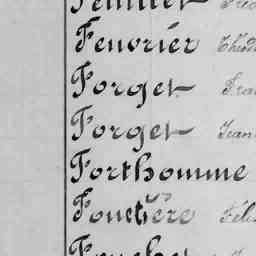 Feuvrier Théod
Forget Fra
Forget Jean
Forthomme
Fouctière Féli